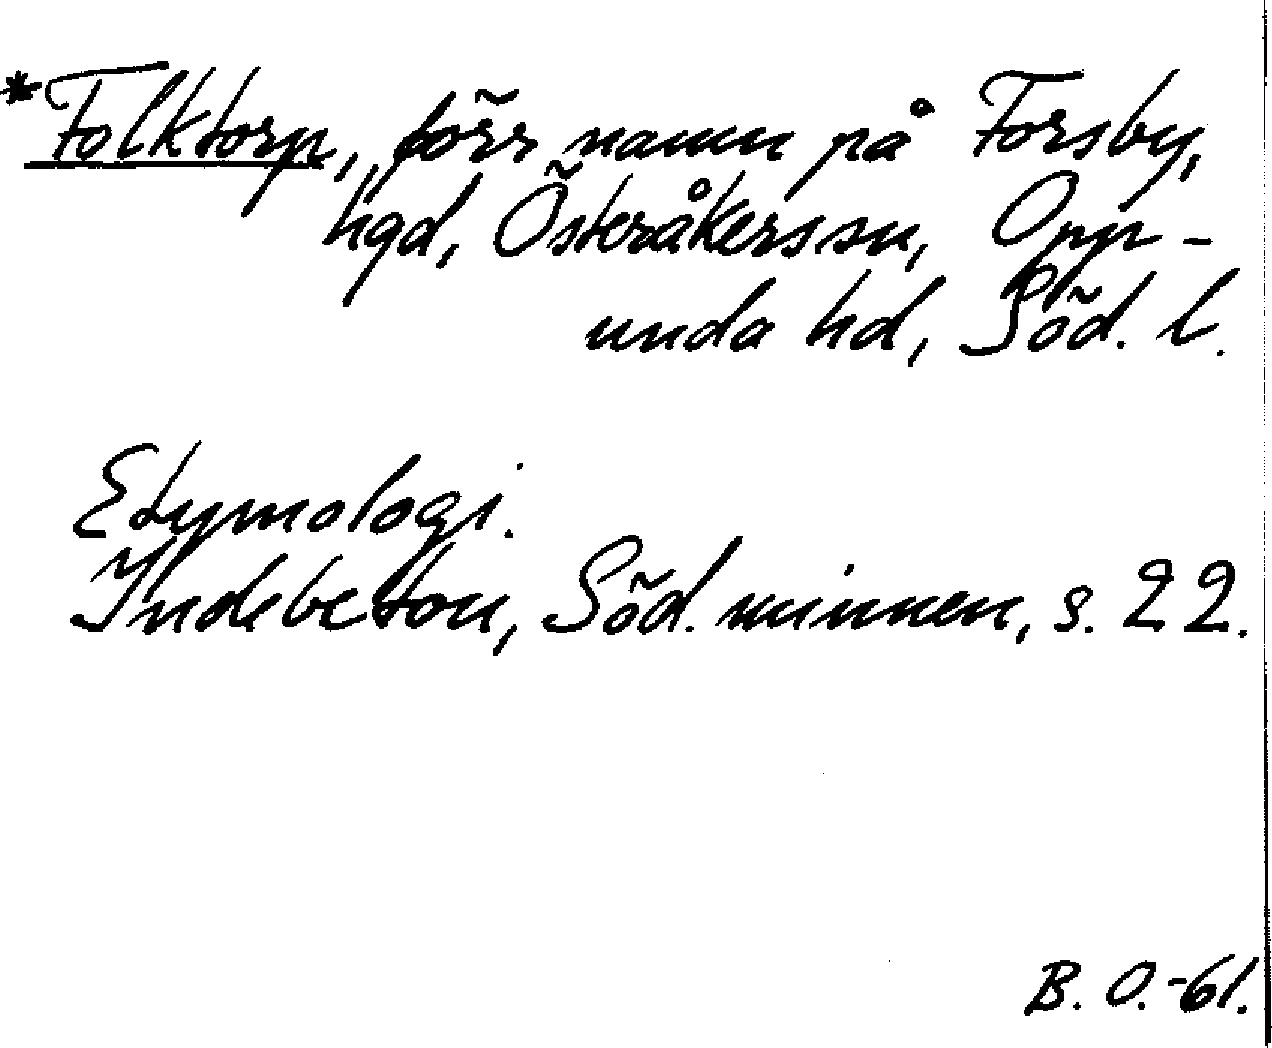 *Folktorp, förr namn på Forsby,
hgd, Österåkers sn, Opp-
unda hd, Söd. l.
Etymologi.
Indebetou, Söd. minnen, s. 22.
B. O. -61.